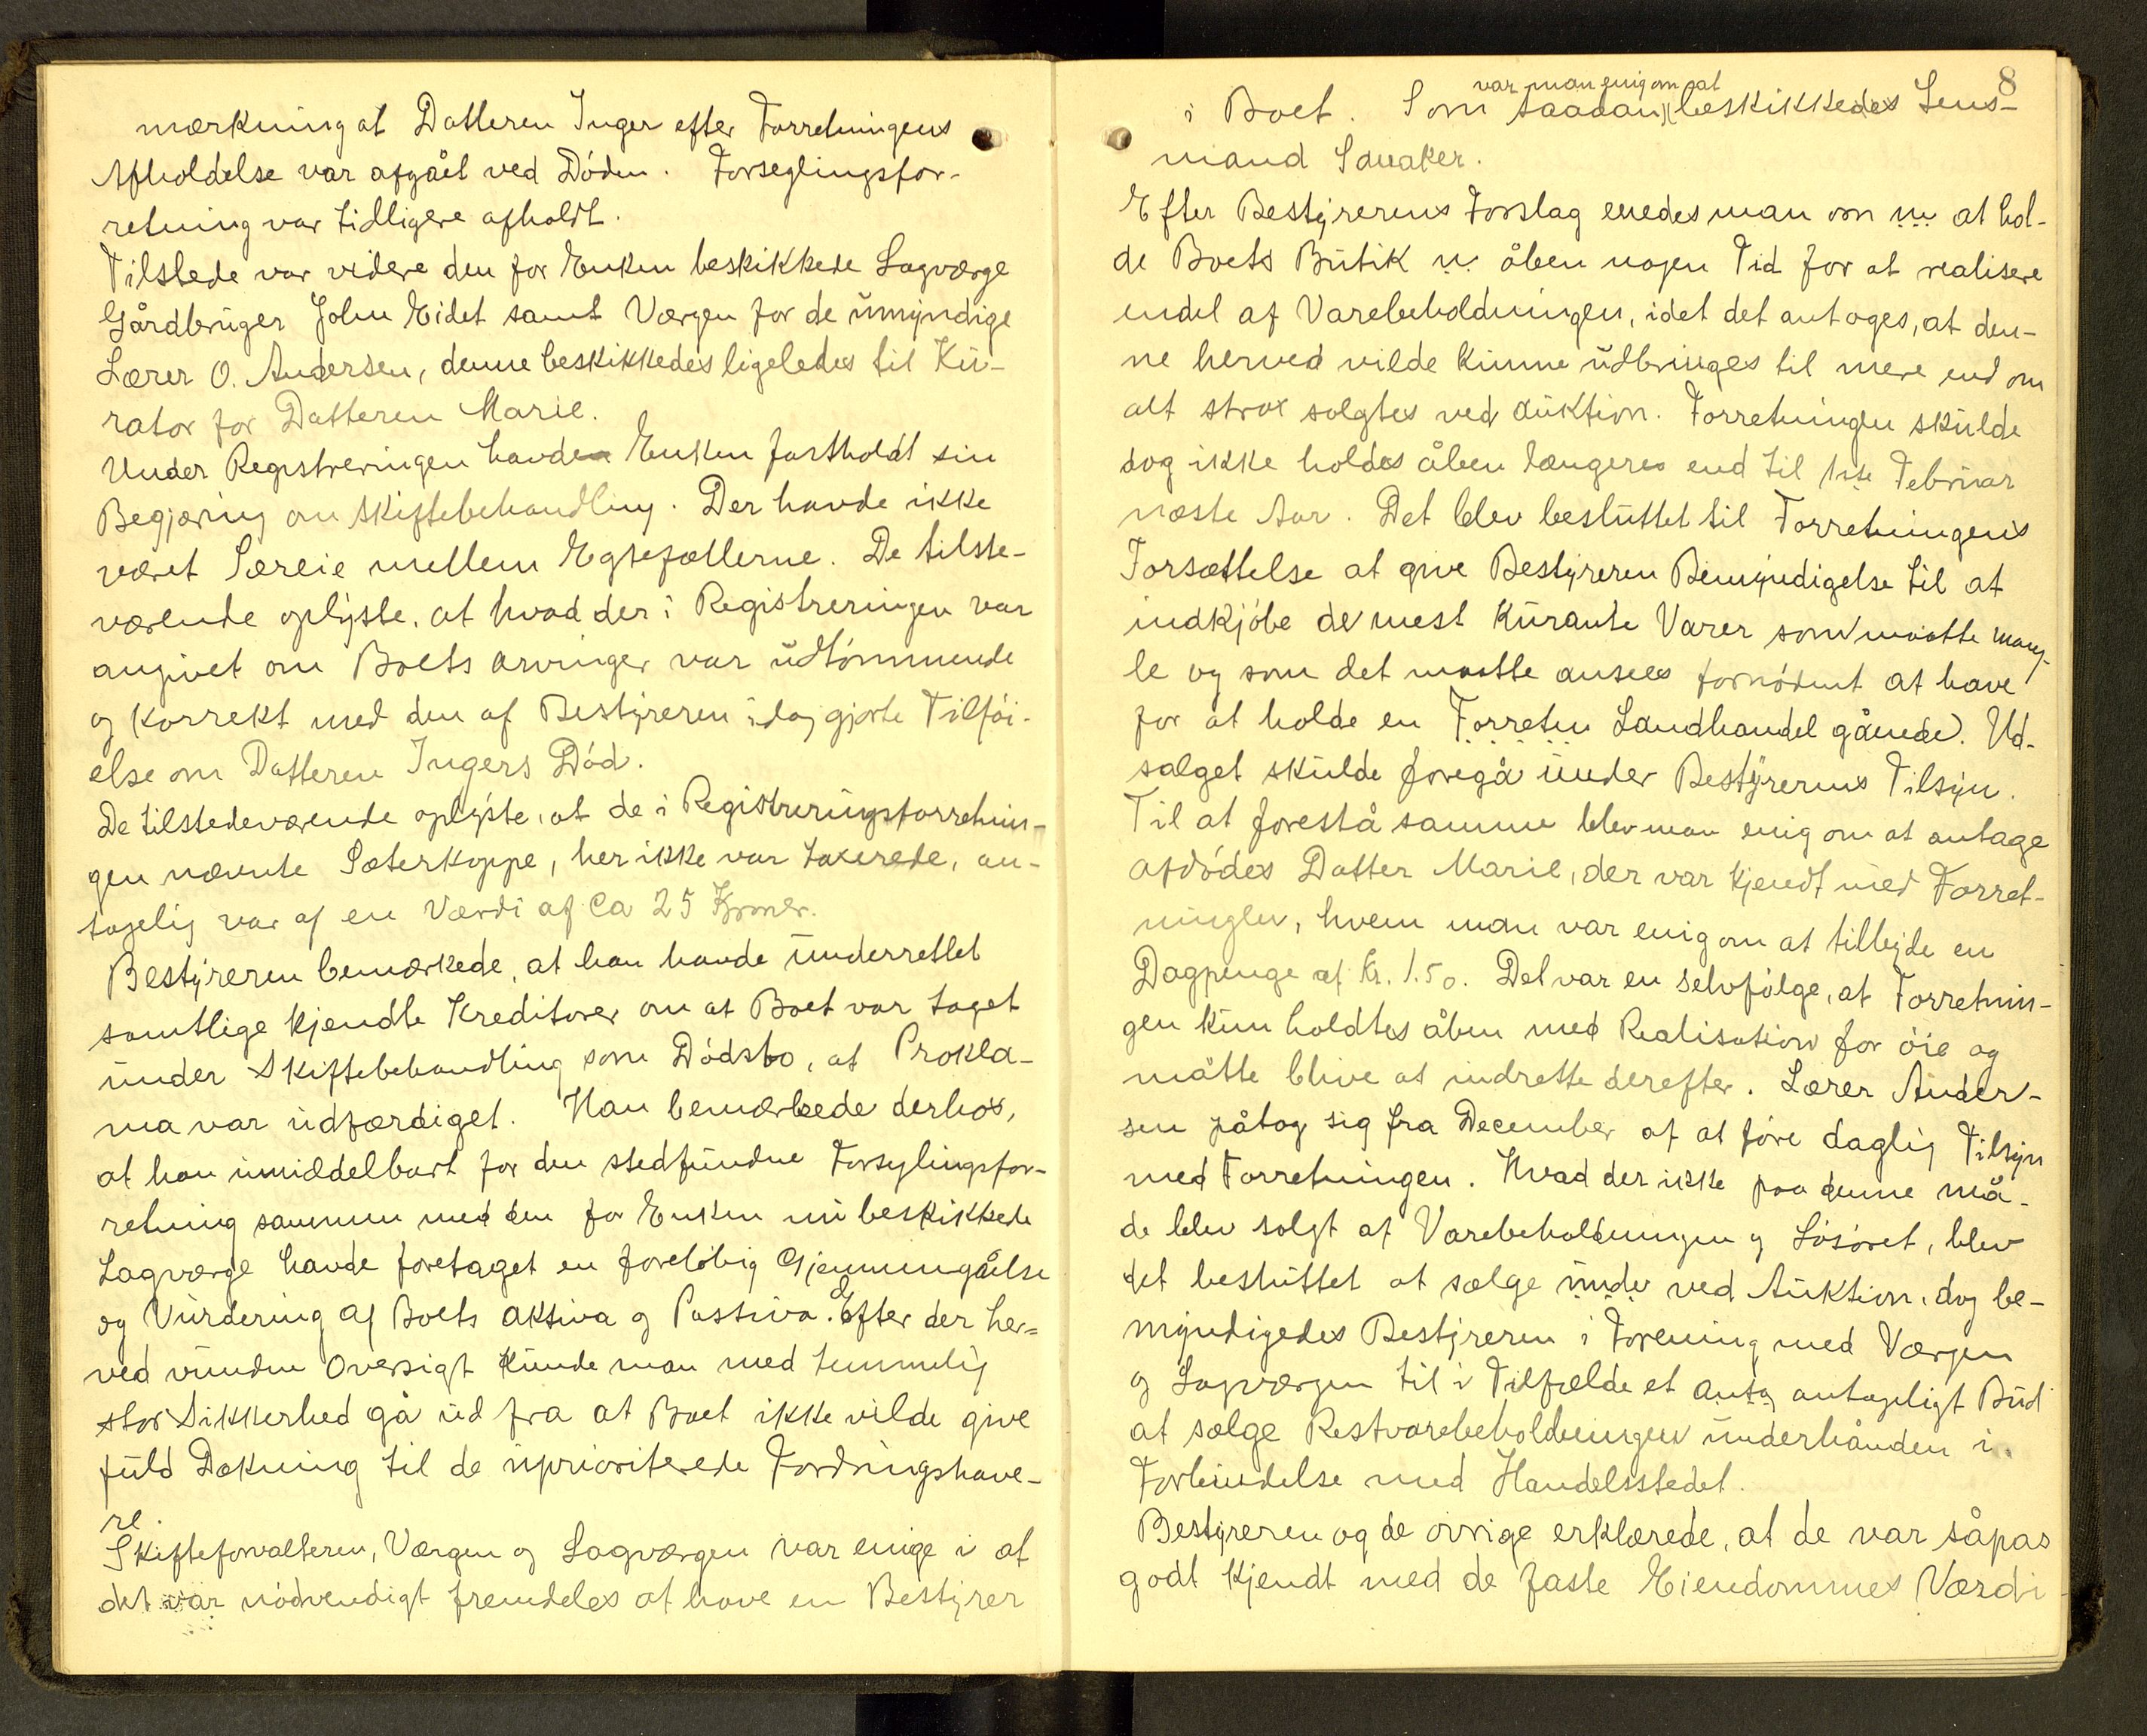 mærkning at Datteren Inger efter Forretningens
Afholdelse var afgået ved Döden. Forseglingsfor-
retning var tidligere afholdt.
Tilstede var videre den for Enken beskikkede Lagværge
Gårdbruger John Eidet samt Værgen for de umyndige
Lærer O. Andersen, denne beskikkedes ligeledes til Ku-
rator for Datteren Marie.
Under Registreringen havde Enken fastholdt sin
Begjæring om Skiftebehandling. Der havde ikke
været Særeie mellem Egtefællerne. De tilste-
værende oplyste, at hvad der i Registreringen var
angivet om Boets arvinger var udtömmende
og korrekt med den af Bestyreren idag gjorte Tilföi-
else om Datteren Ingers Död.
De tilstedeværende oplyste, at de i Registreringsforretnin-
gen nævnte Sæterkoppe, her ikke var taxerede, an-
tagelig var af en Værdi af Ca 25 Kroner.
Bestyreren bemærkede, at han havde underrettet
samtlige kjendte Kreditorer om at Boet var taget
under Skiftebehandling som Dödsbo, at Prokla-
ma var udfærdiget. Han bemærkede derhos,
at han umiddelbart for den stedfundne Forseglingsfor-
retning sammen med den for Enken nu beskikkede
Lagværge havde foretaget en foreløbig Gjennemgåelse
og Vurdering af Boets Aktiva og Passiva. Efter der her-
ved vundne Oversigt kunde man med temmelig
stor Sikkerhed gå ud fra at Boet ikke vilde give
fuld Dækning til de uprioriterede Fordringshave-
re.
Skifteforvalteren, Værgen og Lagværgen var enige i at
det var nödvendigt fremdeles at have en Bestyrer
8
var man enig om at
i Boet. Som saadan beskikkedes Lens-
mand Sauaker.
Efter Bestyrerens Forslag enedes man om nu at hol-
de Boets Butik u åben nogen Tid for at realisere
endel af Varebeholdningen, idet det antoges, at den-
ne herved vilde kunne udbringes til mere end om
alt strax solgtes ved auktion. Forretningen skulde
dog ikke holdes åben længere end til 1ste Februar
næste Aar. Det blev besluttet til Forretningens
Forsættelse at give Bestyreren Bemyndigelse til at
indkjöbe de mest kurante Varer som maatte mang-
le og som det maatte ansees fornödent at have
for at holde en Forretn Landhandel gående. Ud-
salget skulde foregå under Bestyrerens Tilsyn.
Til at forestå samme blev man enig om at antage
afdödes Datter Marie, der var kjendt med Forret-
ningen, hvem man var enig om at tilbyde en
Dagpenge af Kr. 1.50. Det var en selvfölge, at Forretnin-
gen kun holdtes åben med Realisation for öie og
måtte blive at indrette derefter. Lærer Ander-
sen påtog sig fra December af at före daglig Tilsyn
med Forretningen. Hvad der ikke paa denne må-
de blev solgt af Varebeholdningen og Lösöret, blev
det besluttet at sælge under ved Auktion, dog be-
myndigedes Bestyreren i Forening med Værgen
og Lagværgen til i Tilfælde et antg antageligt Bud
at sælge Restvarebeholdningen underhånden i
Forbindelse med Handelsstedet.
Bestyreren og de övrige erklærede, at de var såpas
godt kjendt med de faste Eiendommes Værdi